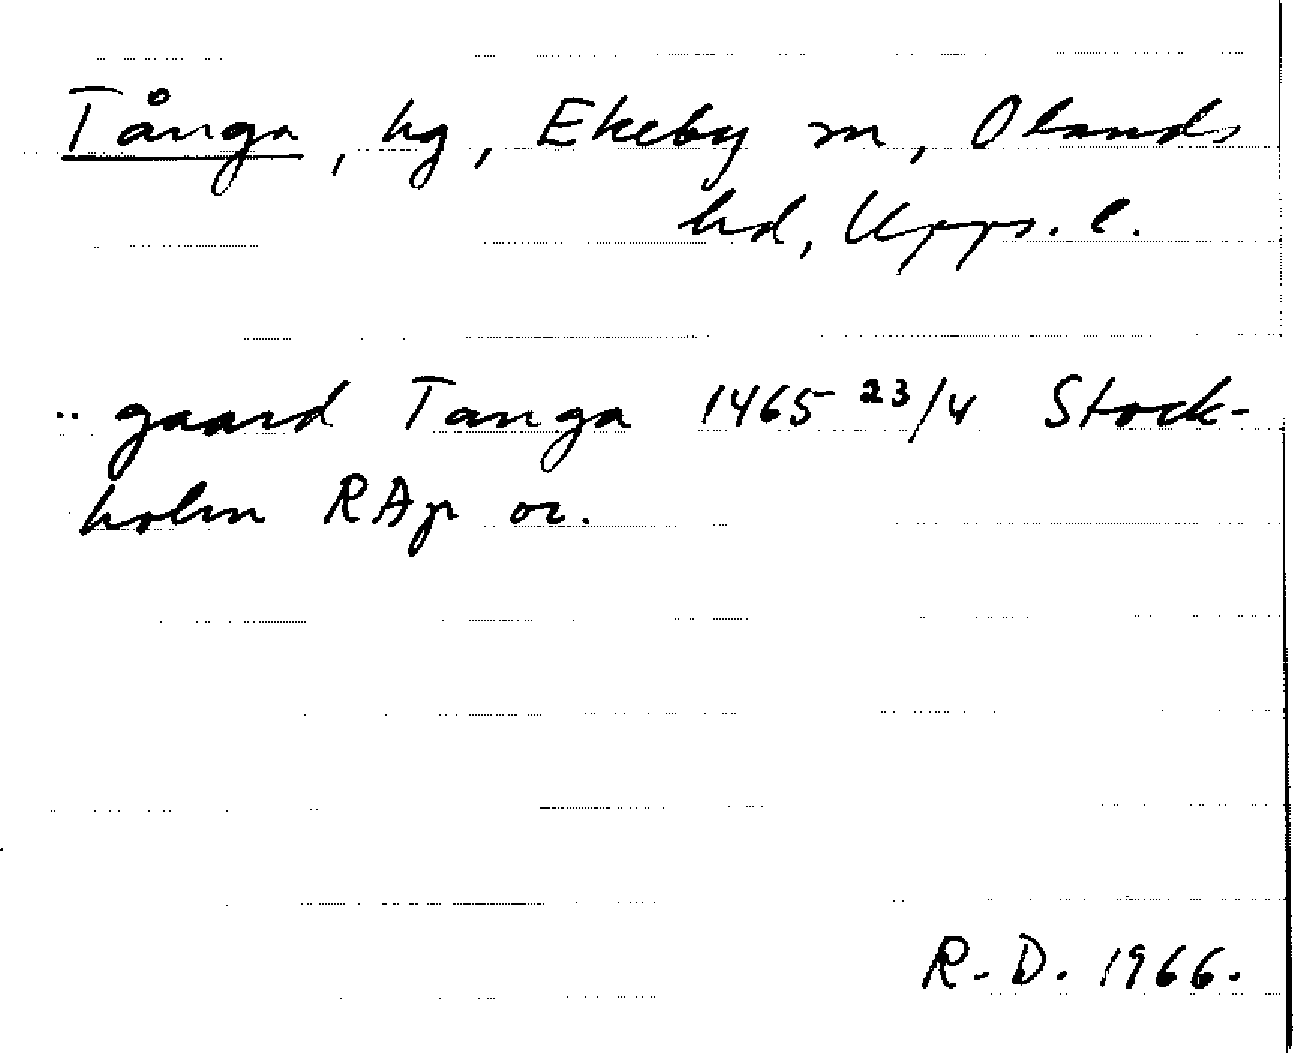 Tånga, hg, Ekeby sn, Olands
hd, Upps. l.
.. gaard Tanga 1465 23/4 Stock-
holm RAp or.
R-D. 1966.